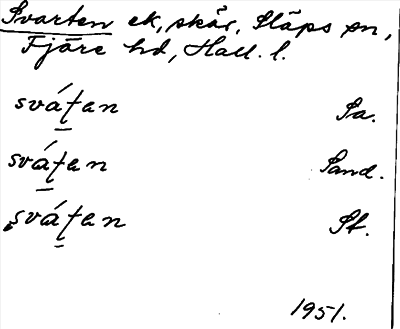 Svarten ek, skär, Släps sn,
Fjäre hd, Hall. l.
svát̠en Sa.
svát̠en Sand.
svát̠en St.
1951.